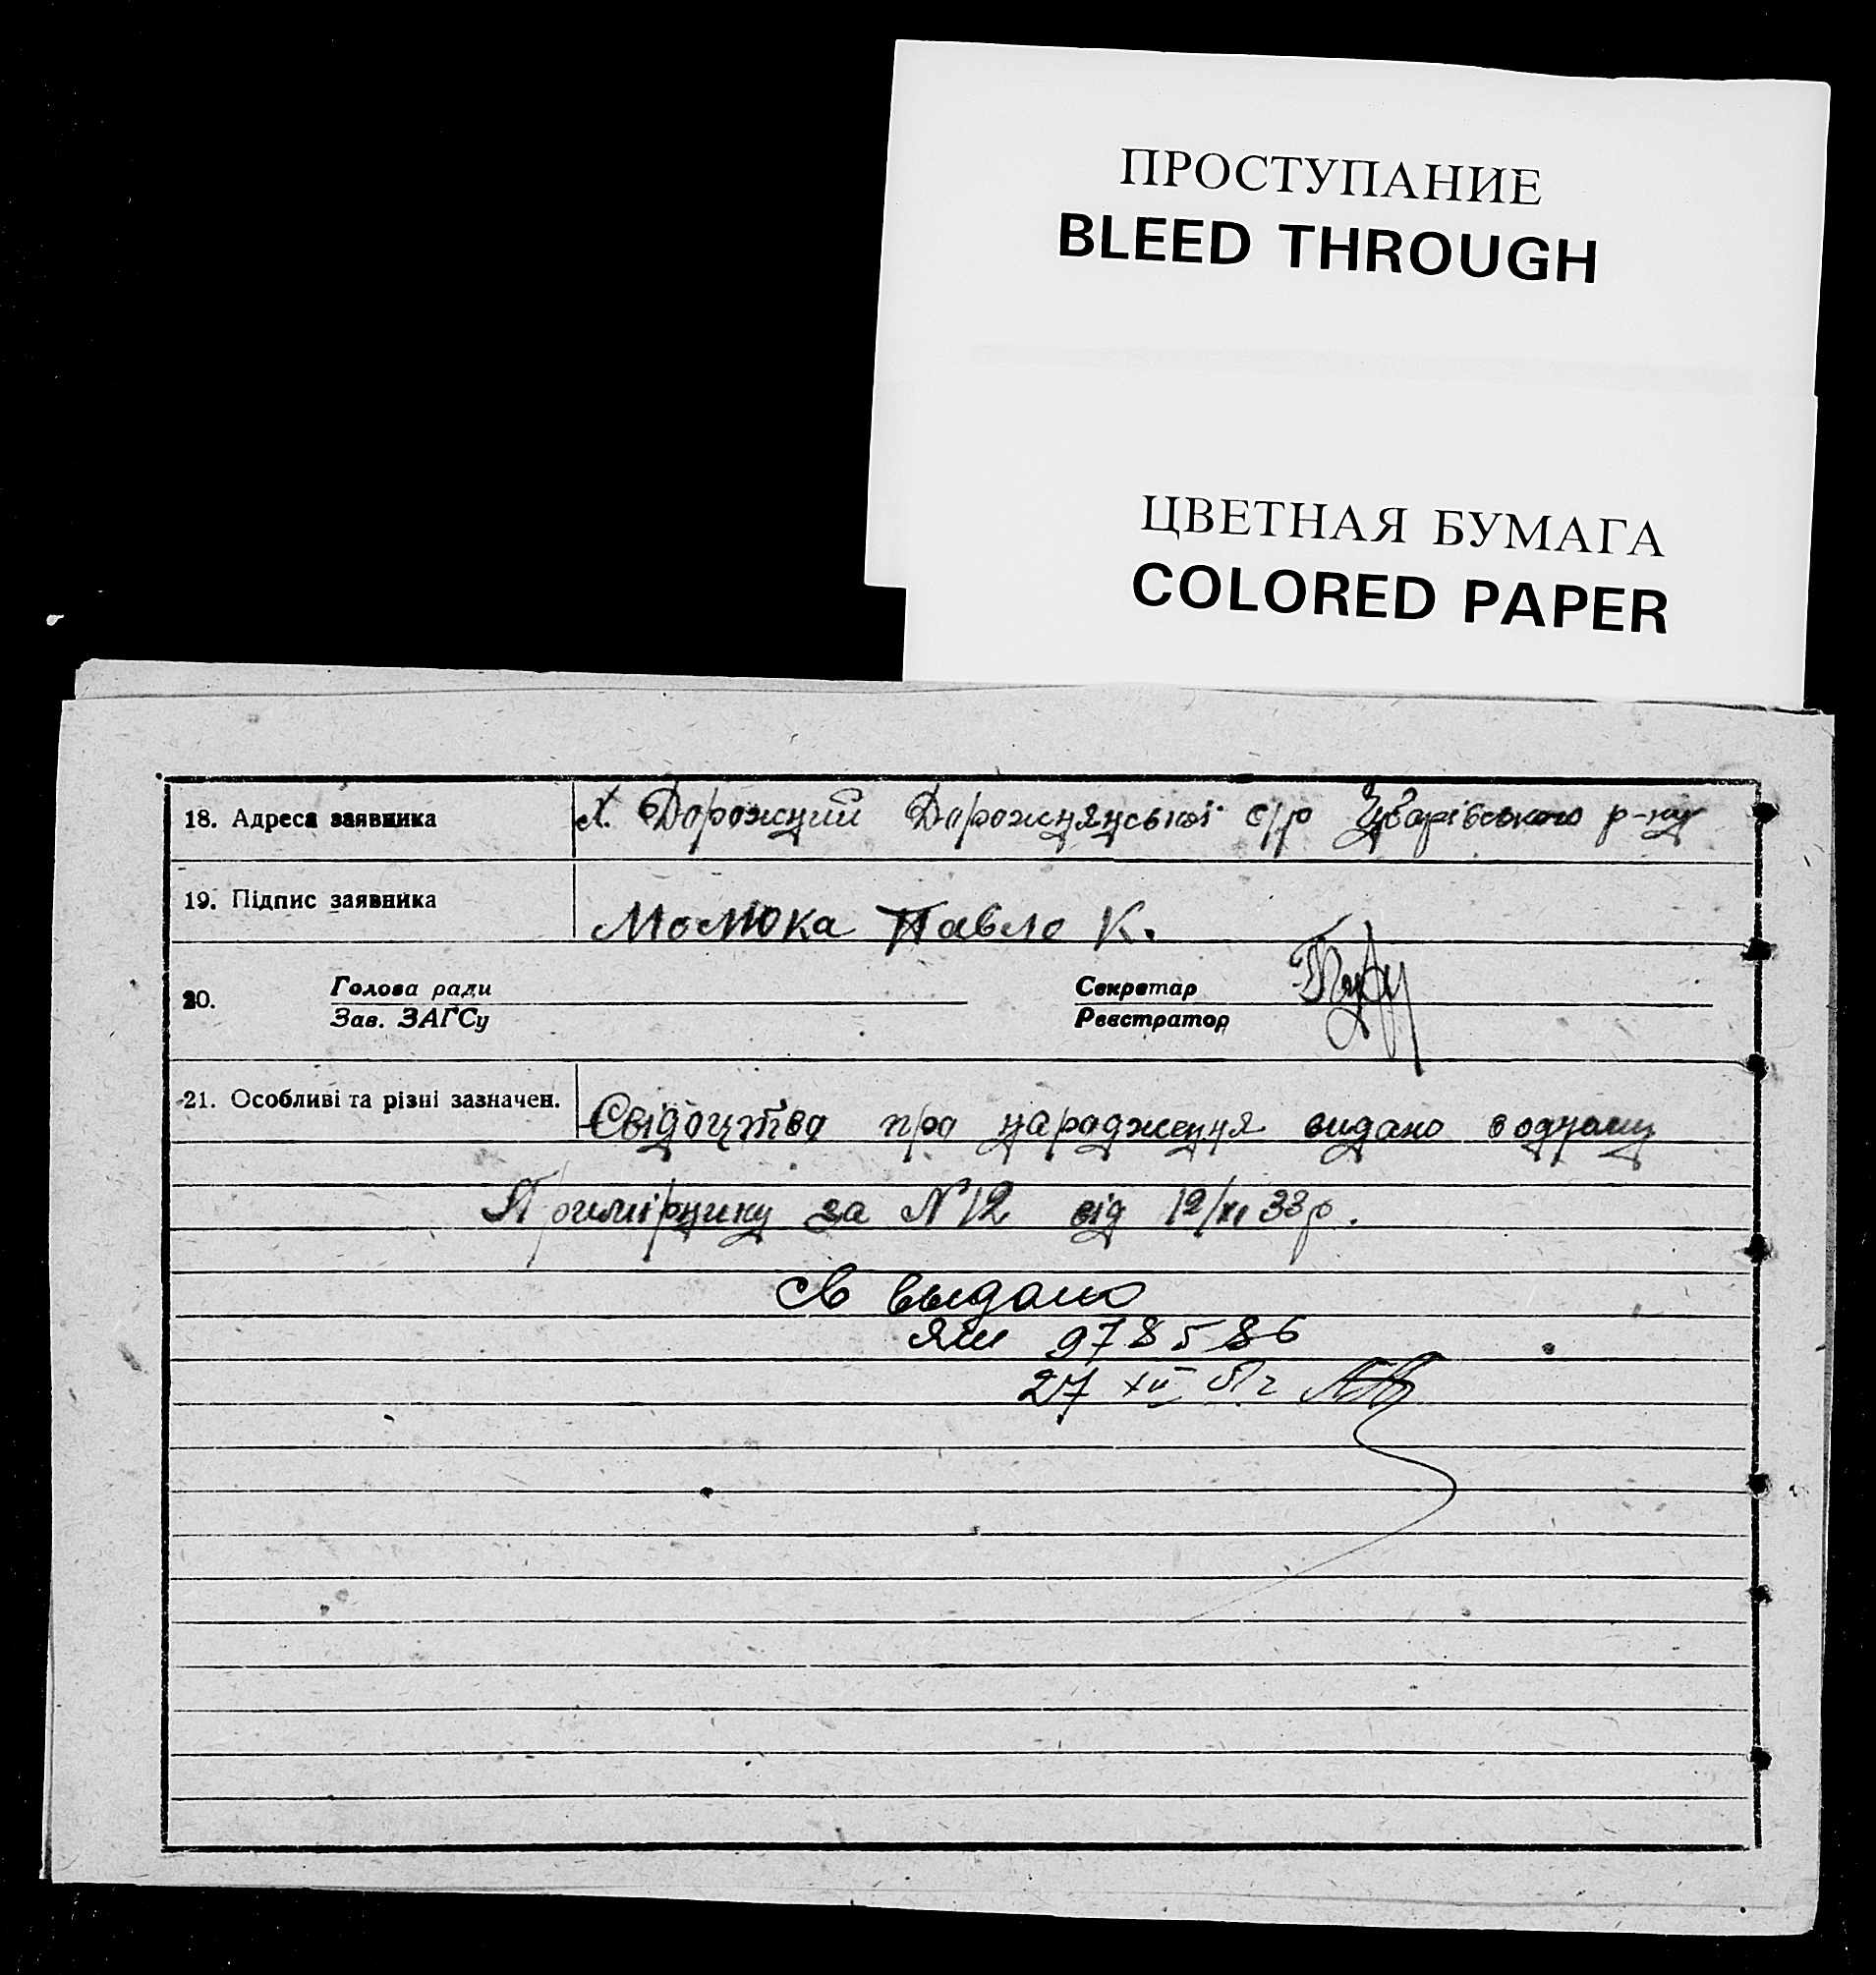 ПРОСТУПАНИЕ
BLEED THROUGH
ЦВЕТНАЯ БУМАГА
COLORED PAPER
18. Адреса заявника х. Дорожний Дорожнянської с/р р-ну
19. Підпис заявника Молюка Павло К.
20. Голова ради Секретар
Зав. ЗАГСу Реєстратор
21. Особливі та різні зазначен. Свідоцтво про народження видано в одному
Примірнику за №12 від 12/XI 33 р.
св выдано
978586
27 XII 51 г